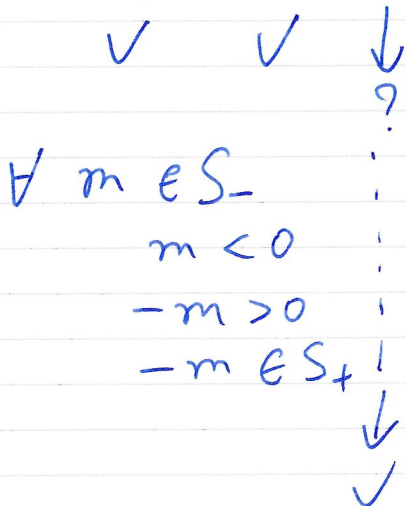 ✓ ✓ ↓
?
∀ m ∈ S_-
m < 0
-m > 0
-m ∈ S_+
↓
✓